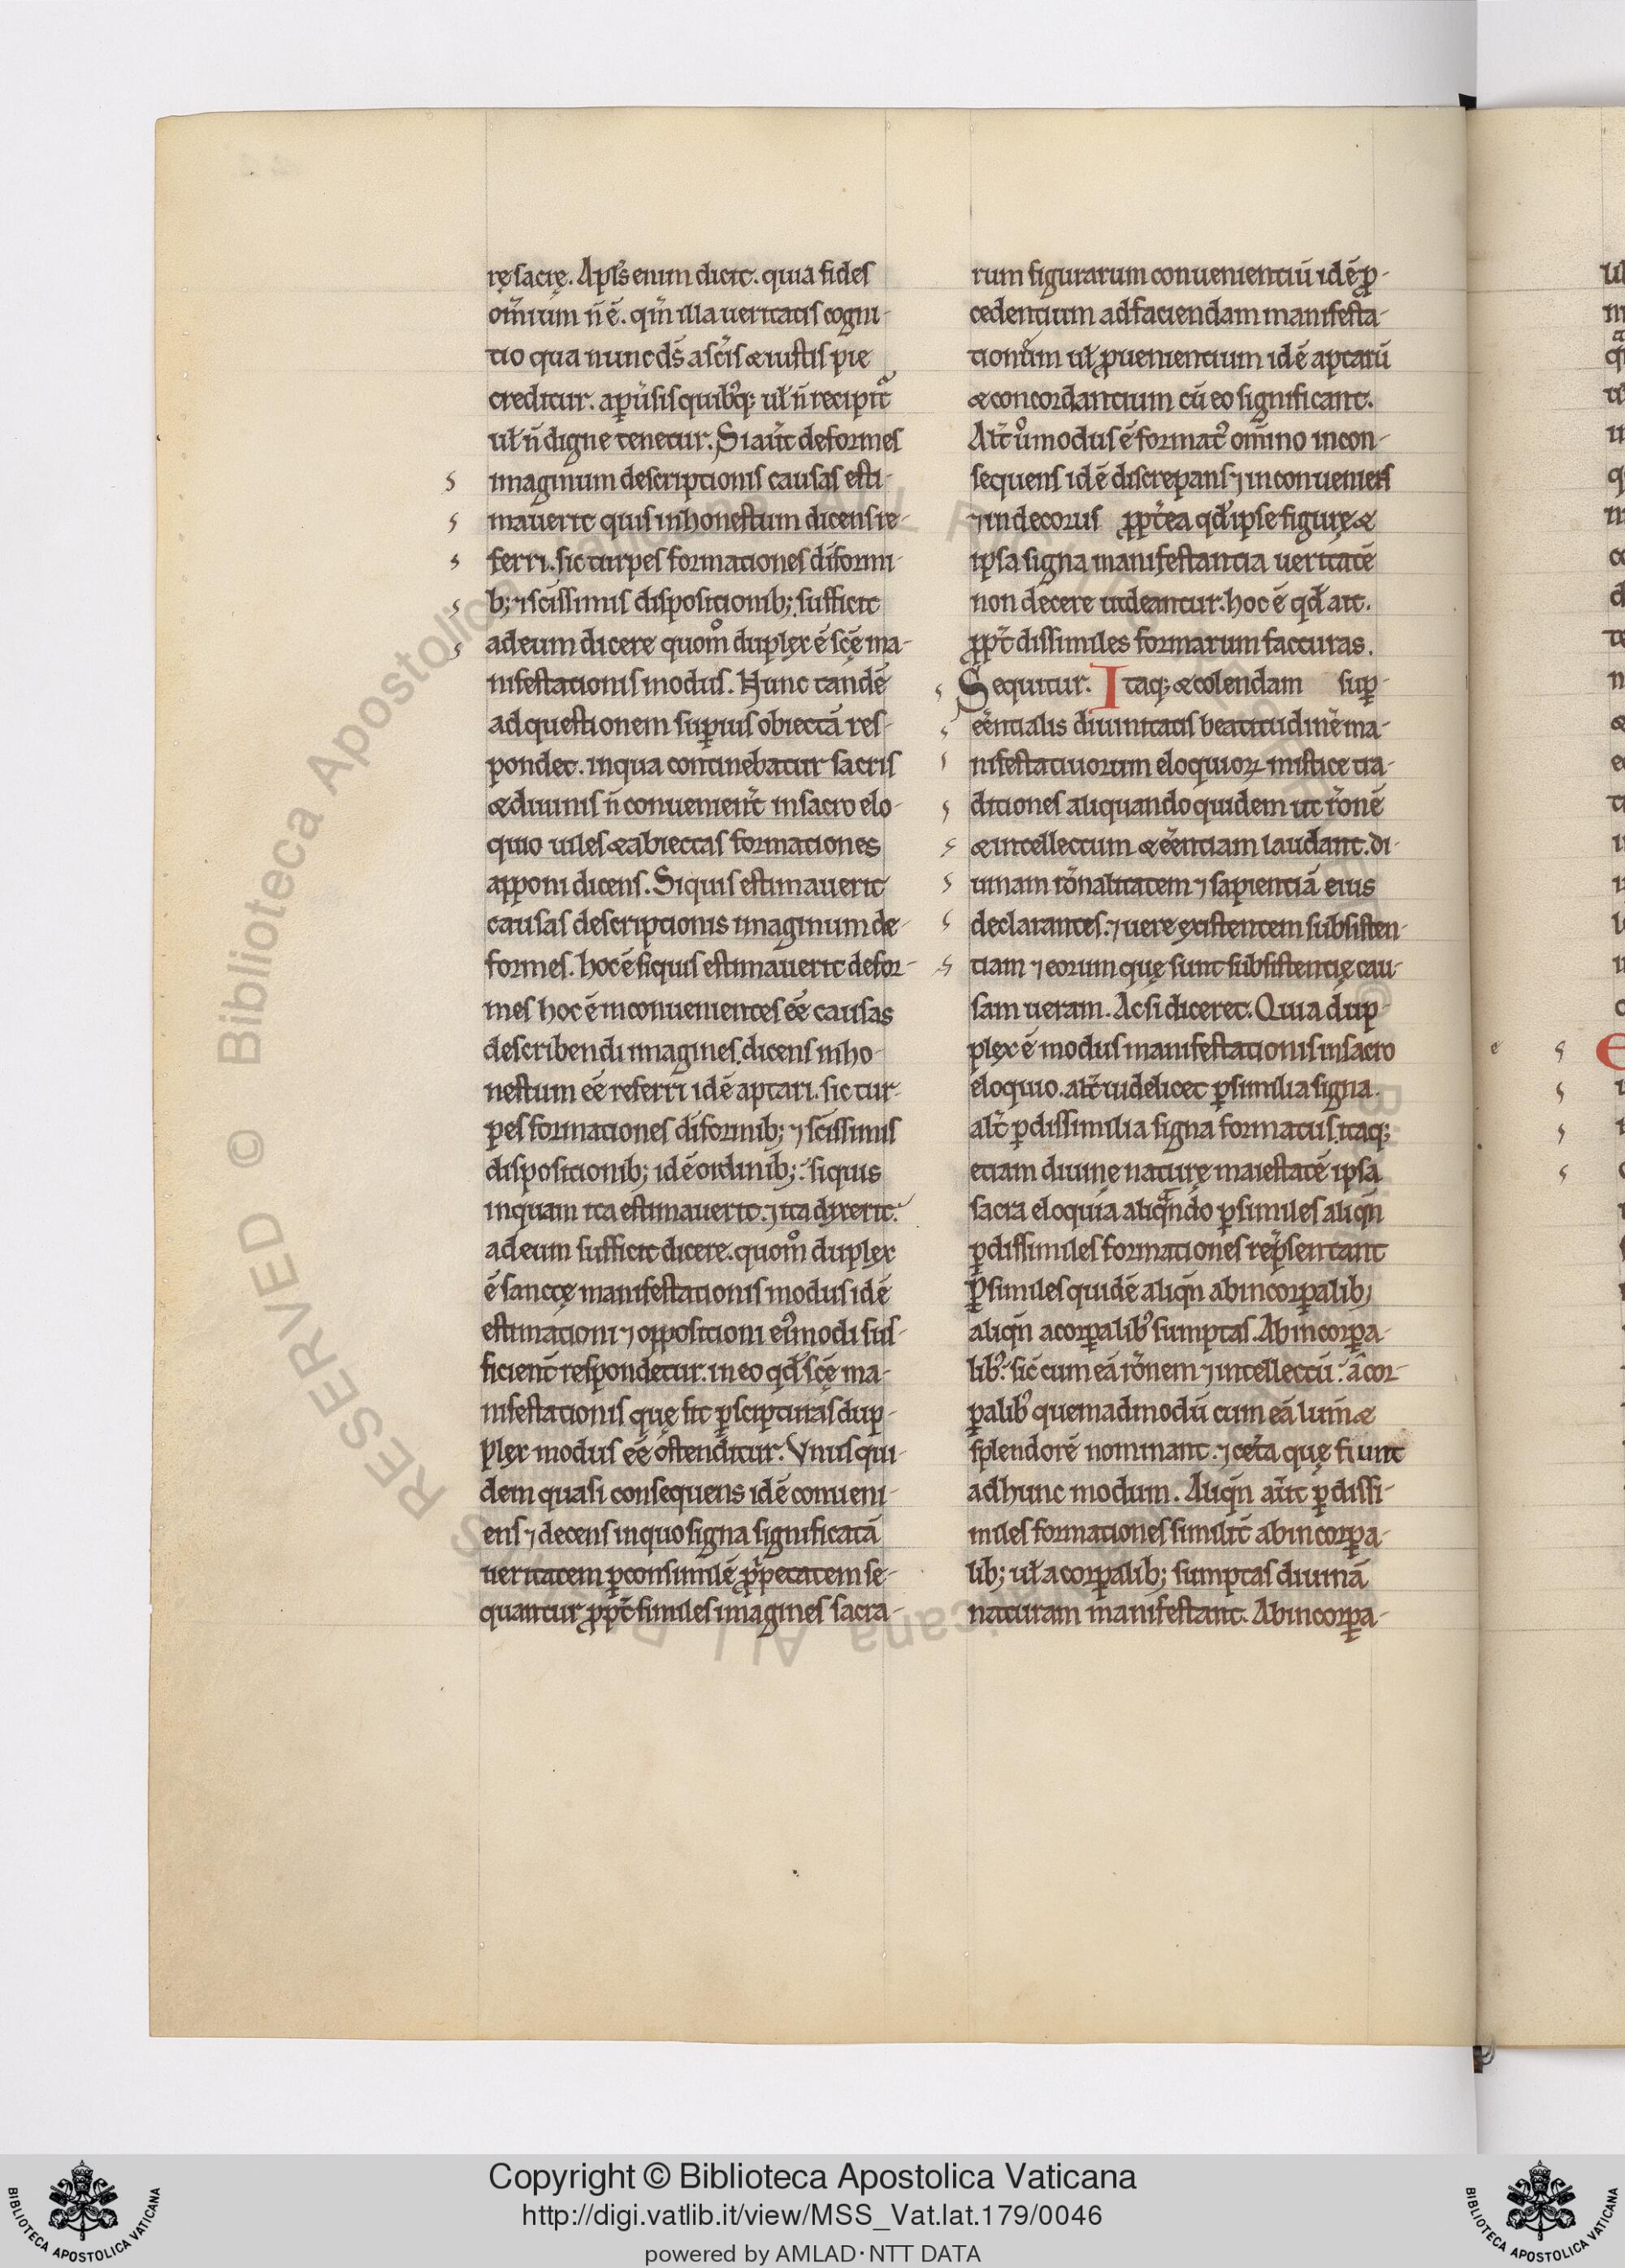 rę sacrę. Apl's enim dicit. quia fides
om̄ium n̄ ē. qm̄ illa ueritatis cogni-
tio qua nunc ds̄ a scīs & iustis pie
creditur. a puersis quibusq; uł n̄ recipit᷑
uł n̄ digne tenetur. Si aut̄ deformes
imaginum descriptionis causas esti-
mauerit quis inhonestum dicens re-
ferri. sic turpes formationes diformi-
b; ⁊ scissimis dispositionib; sufficit
ad eum dicere quom̊ duplex ē sc̄ę ma-
nifestationis modus. Hunc tandē
ad questionem superius obiectā res-
pondet. in qua continebatur sacris
& diuinis n̄ conuenient̄ in sacro elo-
quio uiles & abiectas formationes
apponi dicens. Si quis estimauerit
causas descriptionis imaginum de-
formes. hoc ē si quis estimauerit defor-
mes hoc ē inconuenientes ēe causas
describendi imagines. dicens inho-
nestum ēe referri idē aptari. sic tur-
pes formationes diformib; ⁊ scissimis
dispositionib; idē ordinib; siquis
inquam ita estimauerit. ⁊ ita dixerit.
ad eum sufficit dicere. quom̊ duplex
ē sanctę manifestationis modus idē
estimationi ⁊ oppositioni eiꝰmodi suf-
ficient̄ respondetur. in eo qđ sc̄ę ma-
nifestationis quę fit ꝑ scipturas dup-
plex modus ēe ostenditur. Vnus qui-
dem quasi consequens idē conueni-
ens ⁊ decens in quo signa significatā
ueritatem ꝑ consimilē ꝓpetatem se-
quantur ꝓpt̄ similes imagines sacra-
rum figurarum conuenientiū idē ꝓ-
cedentium ad faciendam manifesta-
tionum uł ꝓuenientium idē aptarū
& concordantium cū eo significant.
Alt̄ ůmodus ē formatꝰ om̄ino incon-
sequens idē discrepans ⁊ inconueniens
⁊ indecorus ꝓpt̄ea qđ ipse figurę &
ipsa signa manifestantia ueritatē
non decere uideantur. hoc ē qđ ait.
ꝓpt̄ dissimiles formarum facturas.
Sequitur. Itaq; & colendam suꝑ-
ēentialis diuinitatis beatitudinē ma-
nifestatiuorum eloquioꝝ mistice tra-
ditiones aliquando quidem ut rōnē
& intellectum & ēentiam laudant. di-
uinam rōnalitatem ⁊ sapientiā eius
declarantes. ⁊ uere existentem subsisten-
tiam ⁊ eorum quę sunt subsistentię cau-
sam ueram. Ac si diceret. Quia dup-
plex ē modus manifestationis in sacro
eloquio. alt̄ uidelicet ꝑ similia signa.
alt̄ ꝑ dissimilia signa formatus. itaq;
etiam diuinę naturę maiestatē ipsa
sacra eloquia aliqn̄do ꝑ similes aliqn̄
ꝑ dissimiles formationes rep̄sentant
ꝑ similes quidē aliqn̄ ab incorꝑalib;
aliqn̄ a corꝑalibꝰ sumptas. Ab incorꝑa-
libꝰ. sic cum eā rōnem ⁊ intellectū. a cor-
ꝑalibꝰ quemadmodū cum eā lum̄ &
splendorē nominant. ⁊ cet̄a quę fiunt
ad hunc modum. Aliqn̄ aut̄ ꝑ dissi-
miles formationes similit̄ ab incorꝑa-
lib; uł a corꝑalib; sumptas diuinā
naturam manifestant. Ab incorꝑa-
Copyright © Biblioteca Apostolica Vaticana
http://digi.vatlib.it/view/MSS_Vat.lat.179/0046
powered by AMLAD·NTT DATA